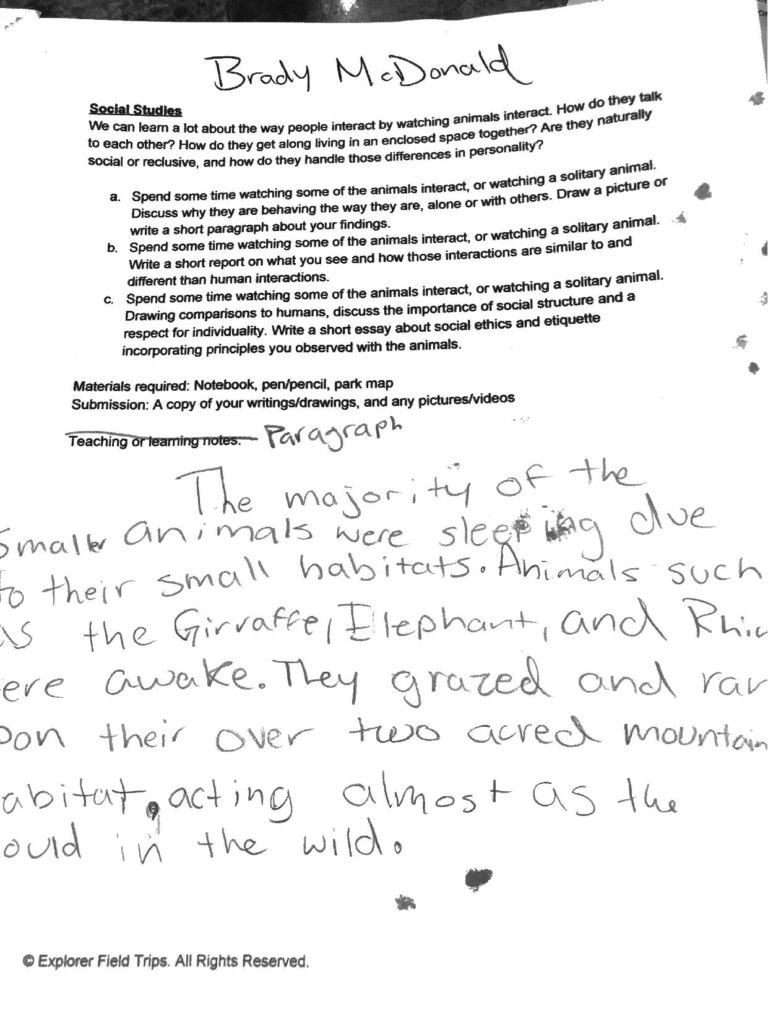 Brady McDonald
Social Studies
We can learn a lot about the way people interact by watching animals interact. How do they talk
to each other? How do they get along living in an enclosed space together? Are they naturally
social or reclusive, and how do they handle those differences in personality?
a. Spend some time watching some of the animals interact, or watching a solitary animal.
Discuss why they are behaving the way they are, alone or with others. Draw a picture or
write a short paragraph about your findings.
b. Spend some time watching some of the animals interact, or watching a solitary animal.
Write a short report on what you see and how those interactions are similar to and
different than human interactions.
c. Spend some time watching some of the animals interact, or watching a solitary animal.
Drawing comparisons to humans, discuss the importance of social structure and a
respect for individuality. Write a short essay about social ethics and etiquette
incorporating principles you observed with the animals.
Materials required: Notebook, pen/pencil, park map
Submission: A copy of your writings/drawings, and any pictures/videos
Teaching or learning notes: Paragraph
The majority of the
Smaller animals were sleeping due
to their small habitats. Animals such
as the Girraffe, Elephant, and Rhic
ere awake. They grazed and rar
pon their over two acred mountain
abitat, acting almost as the
ould in the wild.
© Explorer Field Trips. All Rights Reserved.